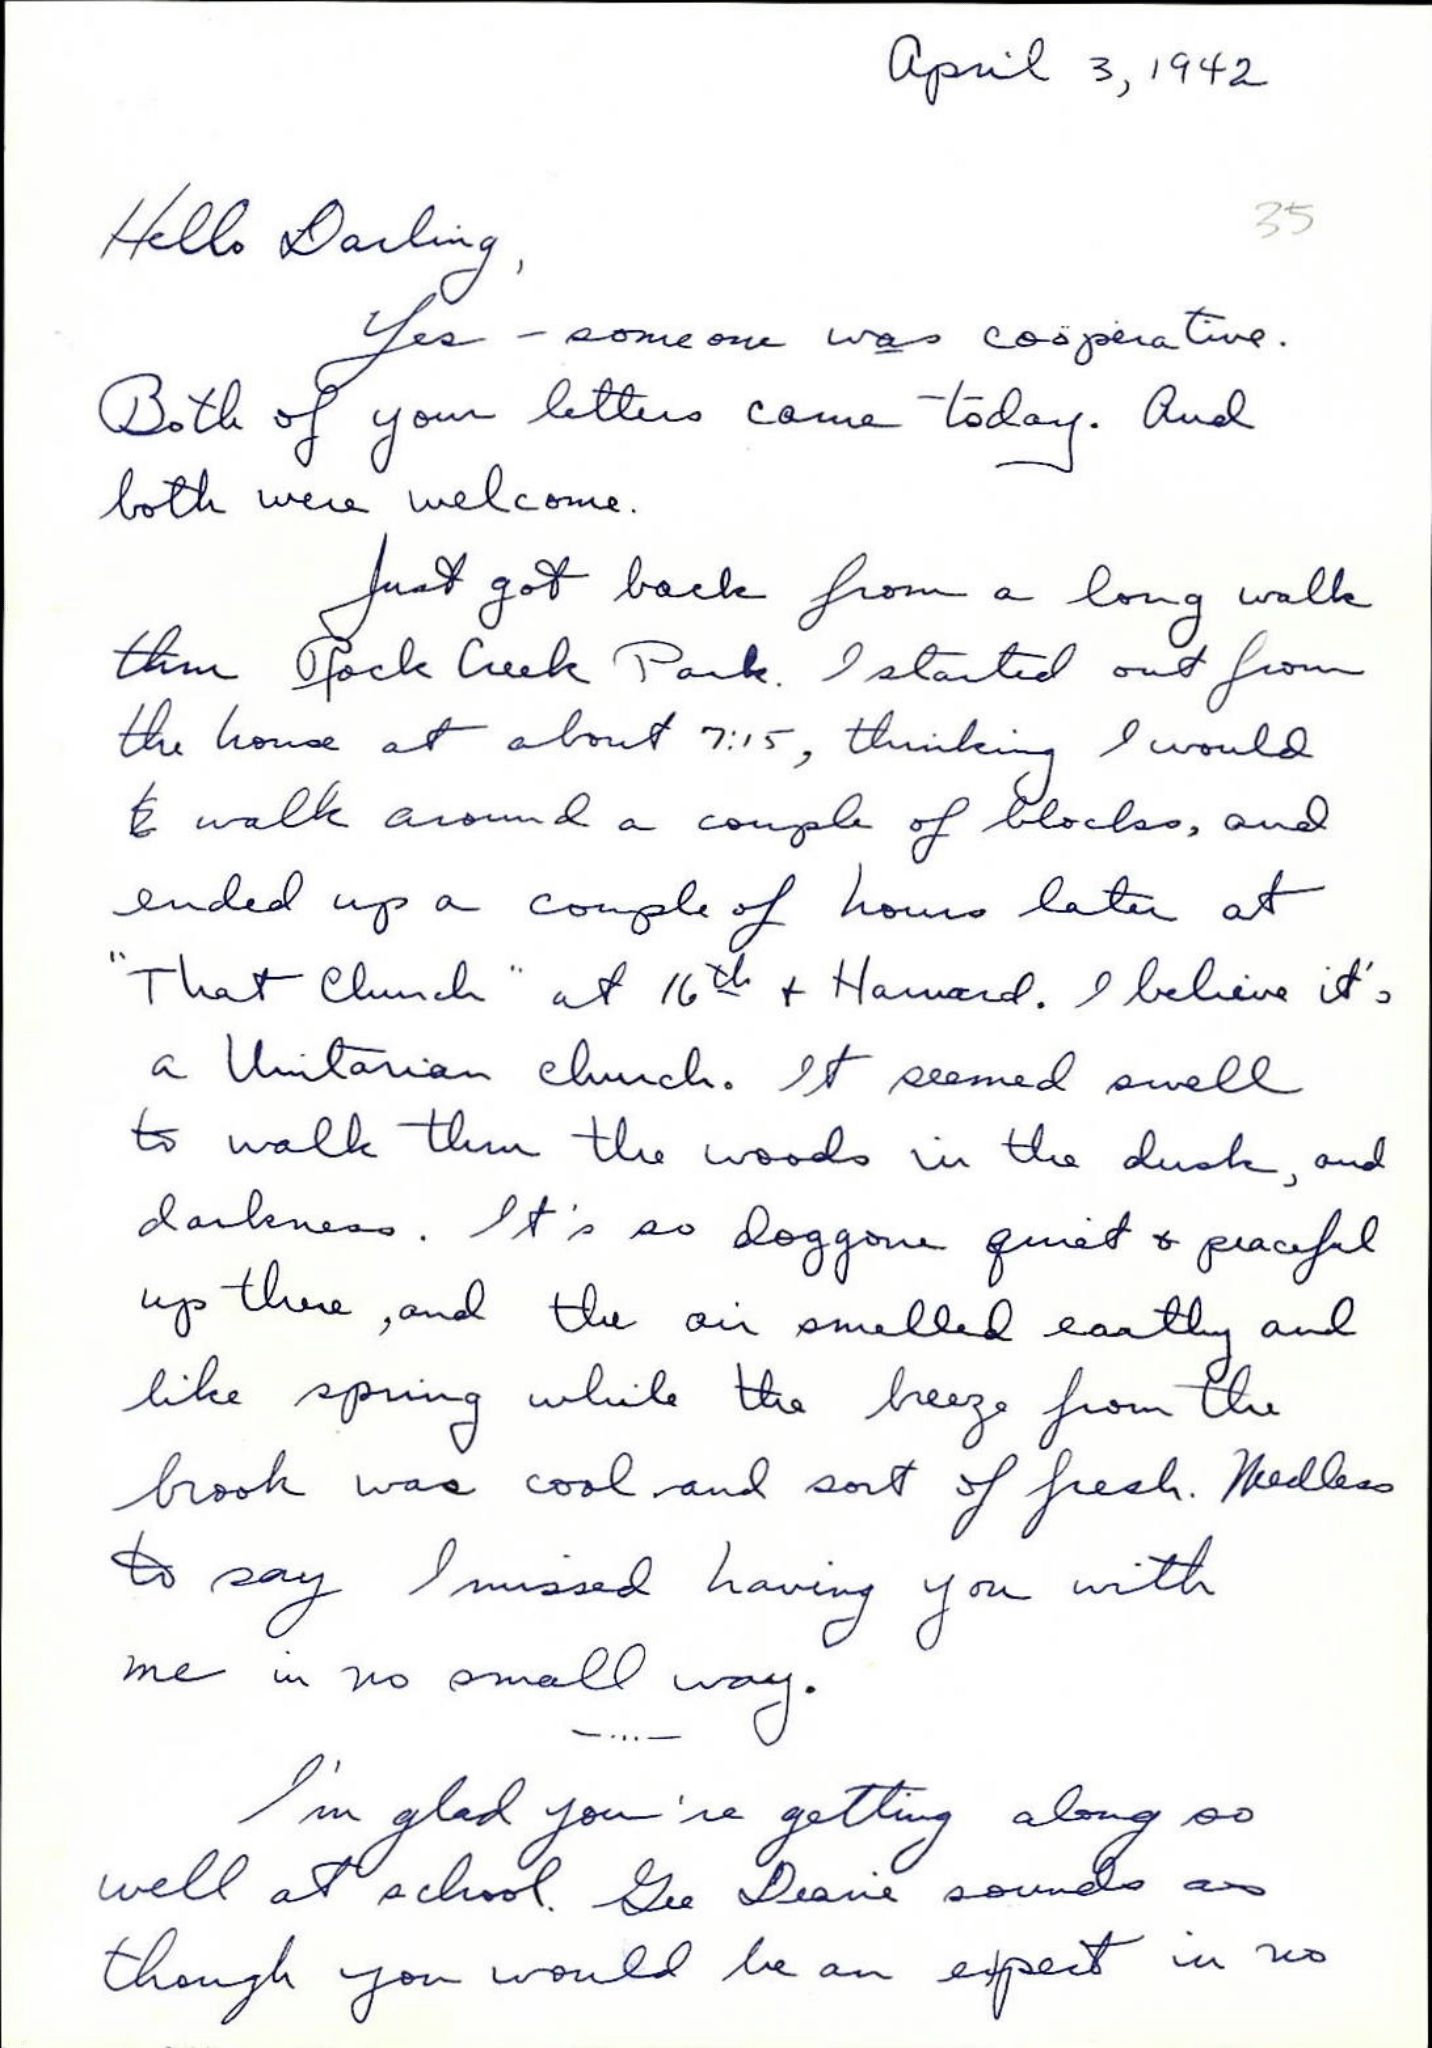 April 3, 1942
35
Hello Darling,
Yes - someone was coöperative.
Both of your letters came today. And
both were welcome.
Just got back from a long walk
thru Rock Creek Park. I started out from
the house at about 7:15, thinking I would
walk around a couple of blocks, and
ended up a couple of hours later at
"That Church" at 16th & Harvard. I believe it's
a Unitarian church. It seemed swell
to walk thru the woods in the dusk, and
darkness. It's so doggone quiet & peaceful
up there, and the air smelled earthy and
like spring while the breeze from the
brook was cool and sort of fresh. Needless
to say I missed having you with
me in no small way.
—...—
I'm glad you're getting along so
well at school. Gee Dearie sounds as
though you would be an expert in no